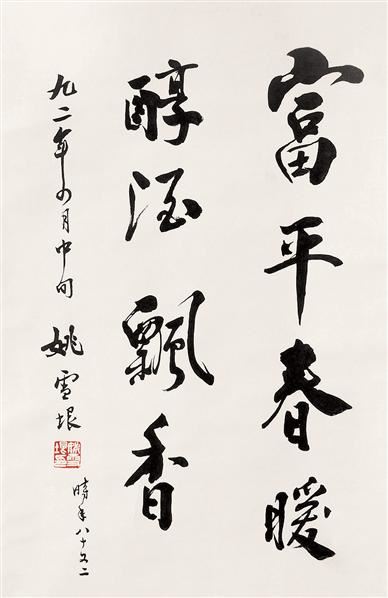 富平春暖
醇酒飘香
九二年四月中旬
姚雪垠
時年八十又二